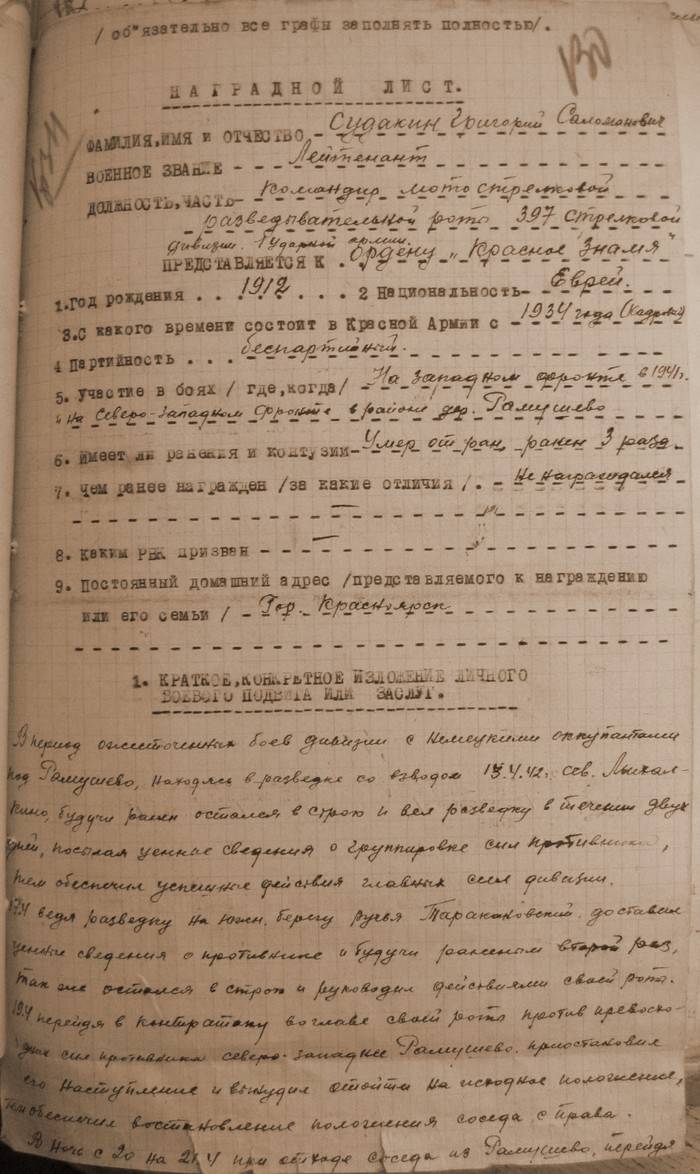 / об"язательно все графы заполнять полностью/.
НАГРАДНОЙ ЛИСТ.
ФАМИЛИЯ,ИМЯ И ОТЧЕСТВО Судакин Григорий Саломонович
ВОЕННОЕ ЗВАНИЕ - Лейтенант
ДОЛЖНОСТЬ,ЧАСТЬ- Командир мотострелковой
разведывательной роты 397 стрелковой
дивизии. 1 Ударной армии.
ПРЕДСТАВЛЯЕТСЯ К . ордену „Красное Знамя"
1.Год рождения . . . 1912 . . . 2 Национальность- Еврей.
3.С какого времени состоит в Красной Армии с - 1934 года (Кадровый)
4 Партийность . . . беспартийный.
5. Участие в боях / где,когда/ На западном фронте в 1941г.
и на Северо-Западном фронте в районе дер. Рамушево
6. Имеет ли ранения и контузии- Умер от ран, ранен 3 раза
7. Чем ранее награжден /за какие отличия /. - Не награждался
8. Каким РВК призван -
9. Постоянный домашний адрес /представляемого к награждению
или его семьи / Гор. Красноярск
1. КРАТКОЕ,КОНКРЕТНОЕ ИЗЛОЖЕНИЕ ЛИЧНОГО
БОЕВОГО ПОДВИГА ИЛИ ЗАСЛУГ.
В период ожесточенных боев дивизии с немецкими оккупантами
под Рамушево, находясь в разведке со взводом 4.42г. сев. Михал-
кино, будучи ранен остался в строю и вел разведку в течении двух
дней, посылая ценные сведения о группировке сил противника,
чем обеспечил успешные действия главных сил дивизии.
17.4 ведя разведку на южн. берегу ручья Таракановский, доставил
ценные сведения о противнике и будучи раненым второй раз,
так же остался в строю и руководил действиями своей роты.
19.4 перейдя в контратаку во главе своей роты против превосхо-
дных сил противника северо-западнее Рамушево, приостановил
его наступление и вынудил отойти на исходное положение,
тем обеспечил востановление положения соседа с права.
В ночь с 20 на 21.4 при отходе соседа из Рамушево, перейдя